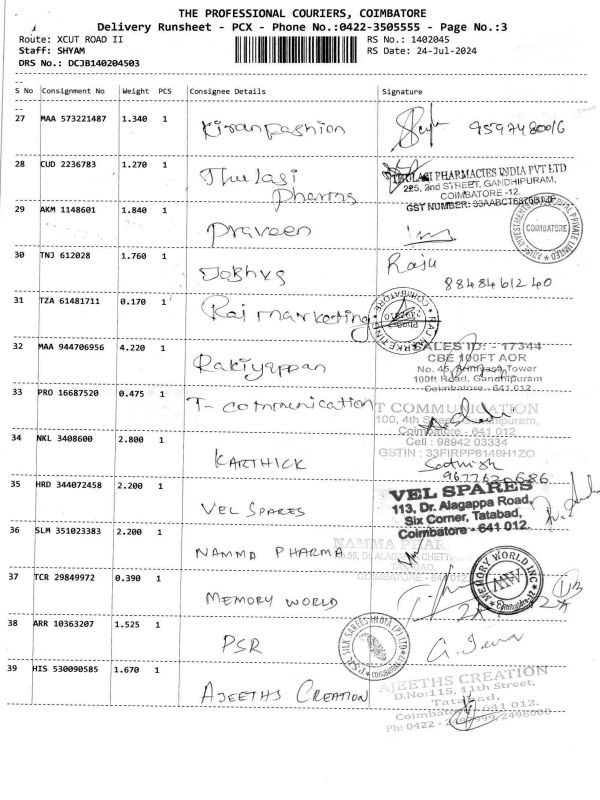 THE PROFESSIONAL COURIERS, COIMBATORE
Delivery Runsheet - PCX - Phone No.:0422-3505555 - Page No.:3
Route: XCUT ROAD II
RS No.: 1402045
Staff: SHYAM
RS Date: 24-Jul-2024
DRS No.: DCJB140204503
S No Consignment No Weight PCS Consignee Details Signature
27 MAA 573221487 1.340 1 Kiranfashion
28 CUD 2236783 1.270 1 Thulasi Pharma
THULASI PHARMACIES INDIA PVT LTD
225, 2nd STREET, GANDHIPURAM,
COIMBATORE -12.
GST NUMBER:
29 AKM 1148601 1.840 1 Praveen
COIMBATORE
30 TNJ 612028 1.760 1 Raju
8848461240
31 TZA 61481711 0.170 1 Raj marketing
RAJ MARKETING
COIMBATORE
32 MAA 944706956 4.220 1 Rakiyappan
SALES ID: - 17344
CBE 100FT AOR
No. 45, Tower
100ft Road, Gandhipuram
Coimbatore - 641 012
33 PRO 16687520 0.475 1 T-communication
T COMMUNICATION
100, 4th
Coimbatore - 641 012
Cell : 98942 03334
GSTIN : 33FIRPP6149H1ZO
34 NKL 3408600 2.800 1 KARTHICK
Sathish
35 HRD 344072458 2.200 1 VEL SPARES
VEL SPARES
113, Dr. Alagappa Road,
Six Corner, Tatabad,
Coimbatore - 641 012.
36 SLM 351023383 2.200 1 NAMMA PHARMA
NAMMA PHAR
COIMBATORE - 641 012
37 TCR 29849972 0.390 1 MEMORY WORLD
MEMORY WORLD INC
MW
Coimbatore-12
38 ARR 10363207 1.525 1 PSR
P.S.R. SILK SAREES INDIA (P) LTD
39 HIS 530090585 1.670 1 AJEETHS CREATION
AJEETHS CREATION
D.No:115, 11th Street,
Tatabad,
Coimbatore 641 012.
Ph: 0422 -